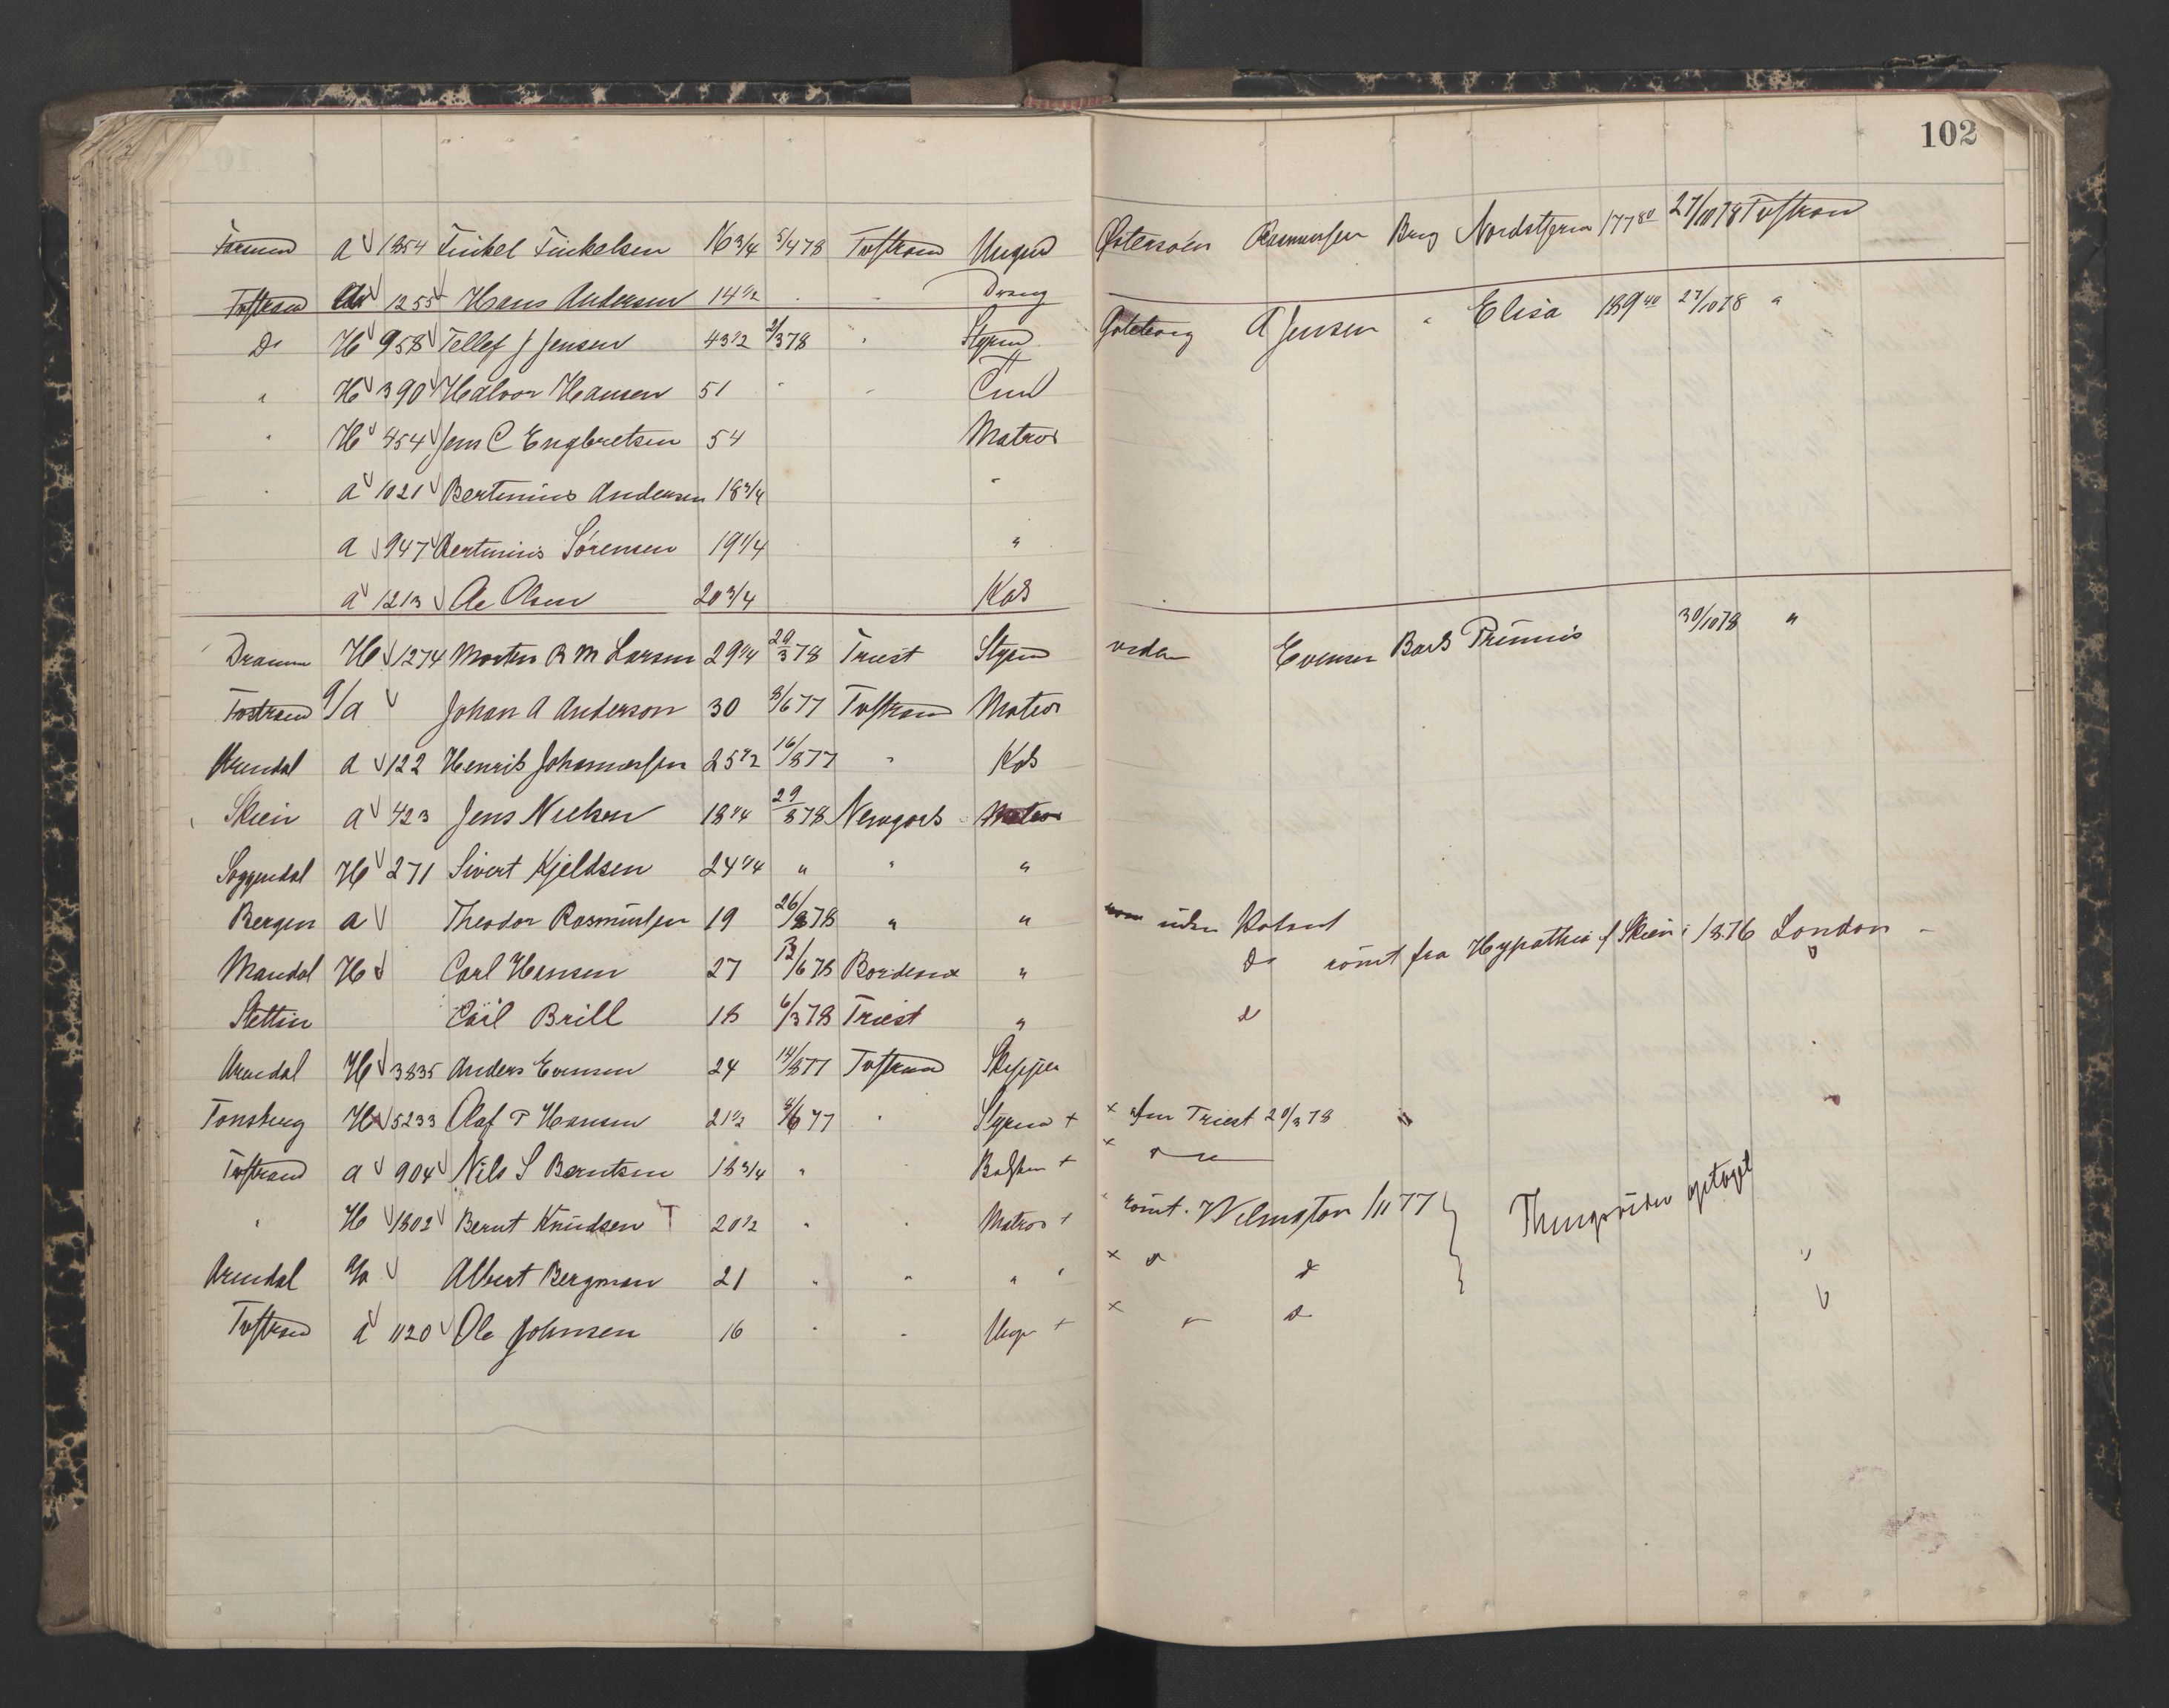 102
Farsund a 1854 Tinkel Tinkelsen 16 3/4 5/4 78 Tvstrand Ungmd Østersøen Rasmussen Brig Nordstjern 177 80 27/10 78 Tvstrand
Tvstrand 1255 Hans Andersen 14 1/2 Dreng
Do H 958 Tellef J Jensen 43 1/2 2/3 78 " Styrmd Goteborg A Jensen " Elisa 189 40 27/10 78 "
" H 390 Halvor Hansen 51 " "
" H 454 Jens C Engbretsen 54 Matros
" a 1021 Bertinius Andersen 18 3/4 "
a 947 Bertinius Sörensen 19 1/4 "
a 1213 Olsen 20 3/4 Kok
Dramm H 1274 Morten B M Larsen 29 1/4 29/3 78 Triest Styrmd Evensen Bark Primus 30/10 78 "
Tvstrand a Johan A Anderson 30 8/6 77 Tvstrand Matros
Arendal a 122 Henrik Johannessen 25 1/2 16/8 77 " Kok
Skien a 423 Jens Nielsen 18 1/4 29/8 78 Newyork Matros
Soggendal H 271 Sivert Kjeldsen 24 1/4 " " "
Bergen a Theodor Rasmussen 19 26/8 78 " " uden
Mandal H Carl Hansen 27 /6 78 Bordeux " Do römt fra Hypathia f Skien i 1876 London
Stettin Carl Brill 18 6/3 78 Triest " d
Arendal H 3835 Anders Evensen 24 14/8 77 Tvstrand Skipper
Tonsberg H 5233 Olaf P Hansen 21 1/2 8/6 77 " Styrmd + × Triest 20/3 78 "
Tvstrand a 904 Nils S Berntsen 18 3/4 " " +  ×
" H 1802 Bernt Knudsen T 20 1/2 " " Matros + römt Wilmington /11 77 } optaget
Arendal Albert Bergman 21 " " " × d
Tvstrand a 1120 Ole Johnsen 16 " " Ungm + × d